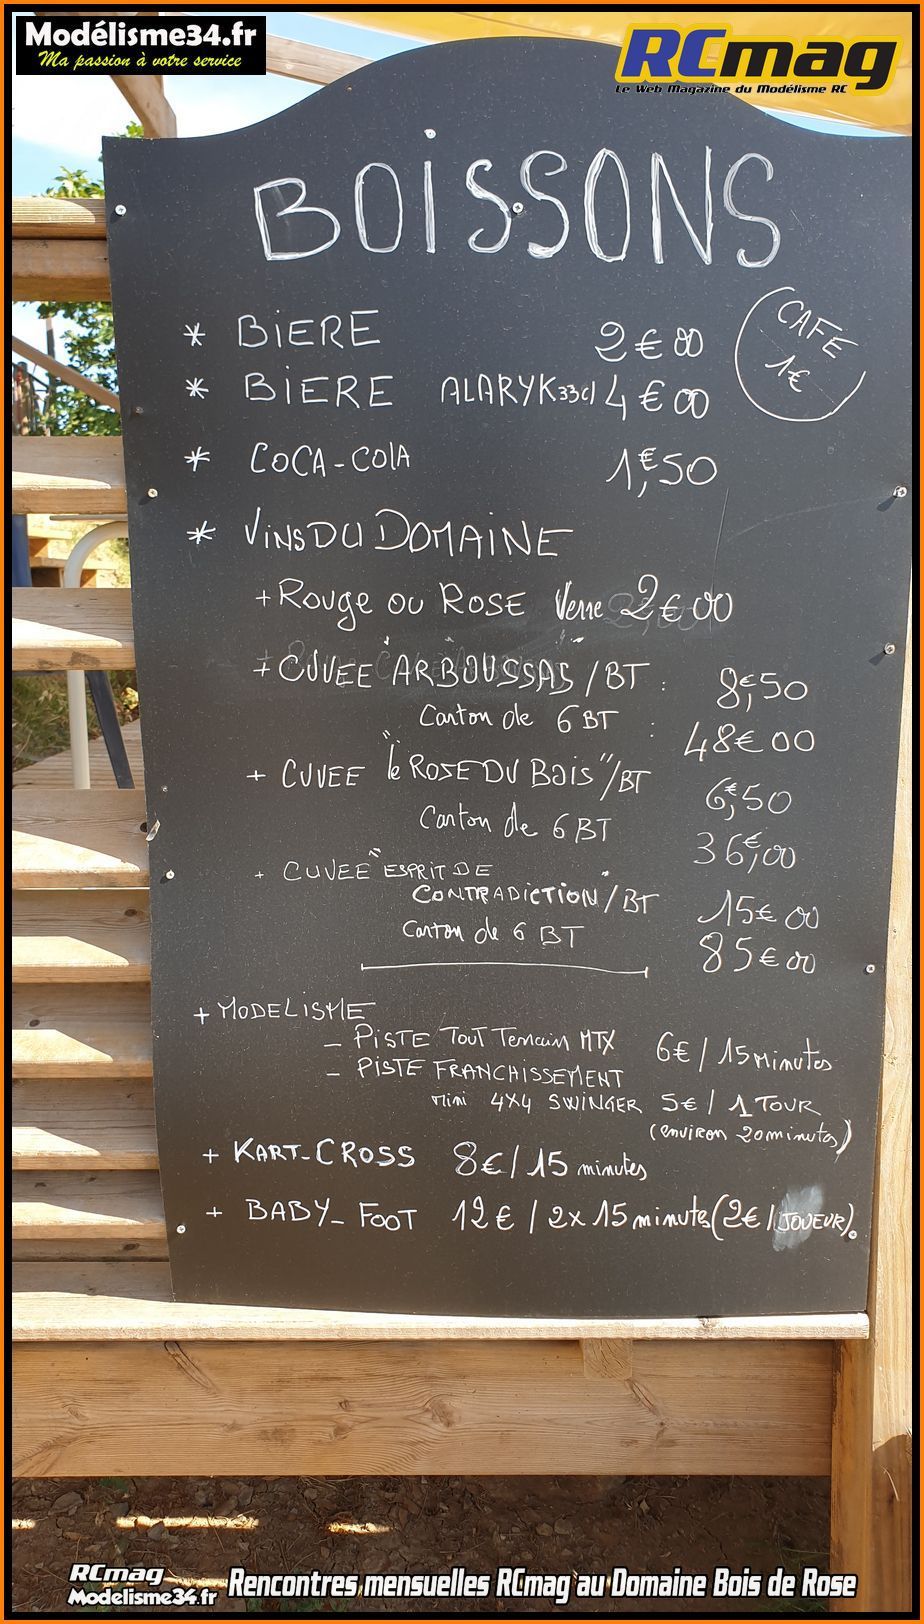 Modélisme34.fr
Ma passion à votre service
RCmag
Le Web Magazine du Modélisme RC
BOISSONS
* BIERE 2€00
CAFE
1€
* BIERE ALARYK 33cl 4€00
* COCA-COLA 1,€50
* VINS DU DOMAINE
+ ROUGE OU ROSE Verre 2€00
+ CUVEE "ARBOUSSAS"/BT : 8,€50
Carton de 6 BT : 48€00
+ CUVEE "le ROSE DU BOIS"/BT 6,€50
Carton de 6 BT 36,€00
+ CUVEE "ESPRIT DE
CONTRADICTION"/BT 15€00
Carton de 6 BT 85€00
+ MODELISME
- PISTE TOUT Terrain MTX 6€/15 Minutes
- PISTE FRANCHISSEMENT
Mini 4X4 SWINGER 5€/1 TOUR
(environ 20 minutes)
+ KART-CROSS 8€/15 minutes
+ BABY-FOOT 12€/2x15 minutes (2€/JOUEUR)
RCmag
Modelisme34.fr
Rencontres mensuelles RCmag au Domaine Bois de Rose